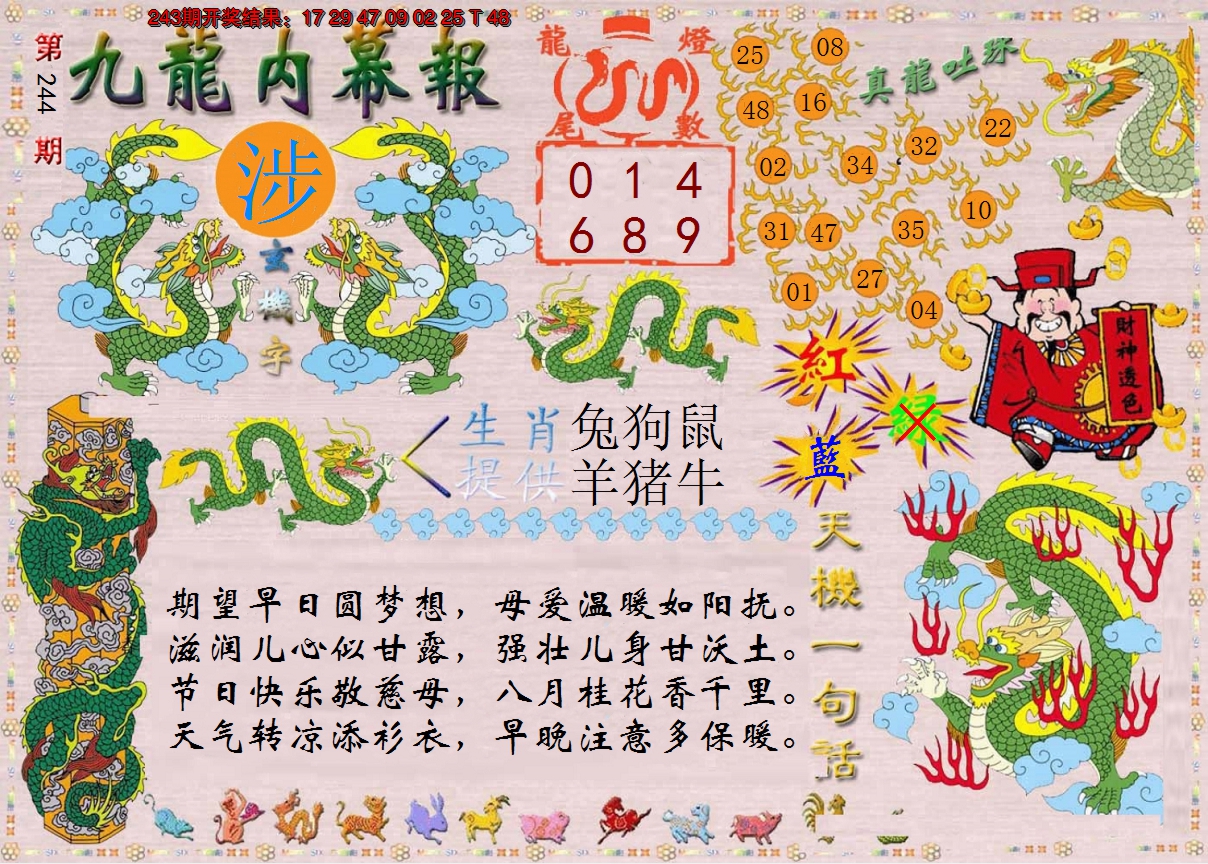 243期开奖结果：17 29 47 09 02 25 T 48
第244期
九龍内幕報
涉
玄機字
龍燈
尾數
0 1 4
6 8 9
真龍吐珠
25 08
48 16
02 34 32 22
31 47 35 10
01 27 04
財神透色
紅
绿
藍
生肖 兔狗鼠
提供 羊猪牛
天機一句話
期望早日圆梦想，母爱温暖如阳抚。
滋润儿心似甘露，强壮儿身甘沃土。
节日快乐敬慈母，八月桂花香千里。
天气转凉添衫衣，早晚注意多保暖。